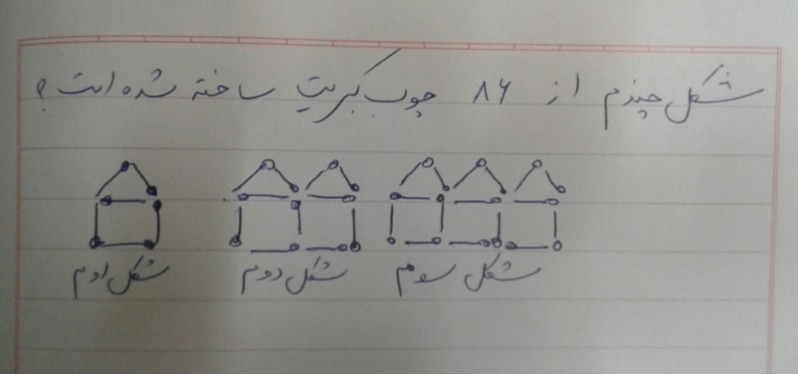 شکل چندم از ۸۶ چوب کبریت ساخته شده است؟
شکل اول شکل دوم شکل سوم